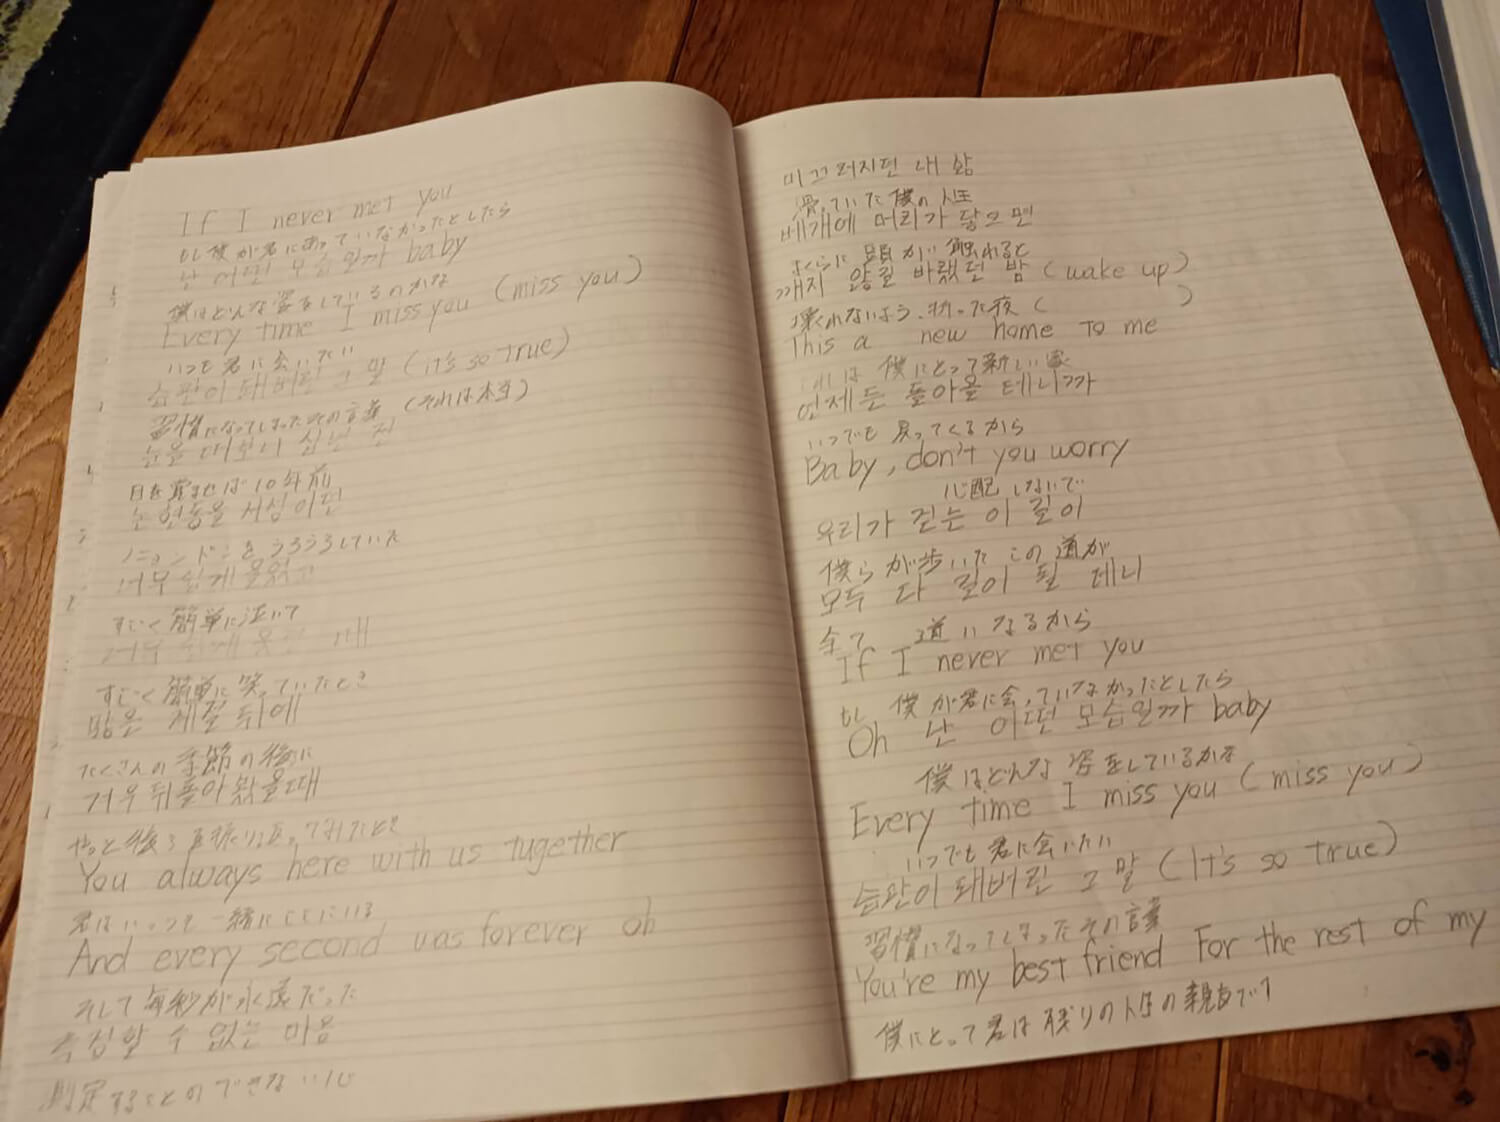 If I never met you
もし僕が君にあっていなかったとしたら
난 어떤 모습일까 baby
僕はどんな姿をしているのかな
Every time I miss you (miss you)
いつも君に会いたい
습관이 돼버린 그 말 (it's so true)
習慣になってしまったその言葉 (それは本当)
눈을 떠보니 십년 전
目を覚ませば10年前
논현동을 서성이던
ノニョンドンをうろうろしていた
너무 쉽게 울었고
すごく簡単に泣いて
너무 쉽게 웃던 때
すごく簡単に笑っていたとき
많은 계절 뒤에
たくさんの季節の後に
겨우 뒤돌아 봤을때
やっと後ろを振り返ってみたとき
You always here with us tugether
君はいつも一緒にここにいる
And every second was forever oh
そして毎秒が永遠だった
측정할 수 없는 마음
測定することのできない心
미끄러지던 내 삶
滑っていた僕の人生
베개에 머리가 닿으면
まくらに頭がい触れると
깨지 않길 바랬던 밤 (wake up)
壊れないよう、祈った夜 ( )
This a new home to me
これは 僕にとって新しい家
언제든 돌아올 테니까
いつでも戻ってくるから
Baby, don't you worry
心配しないで
우리가 걷는 이 길이
僕らが歩いたこの道が
모두 다 길이 될 테니
全て 道になるから
If I never met you
もし 僕が君に会っていなかったとしたら
Oh 난 어떤 모습일까 baby
僕はどんな姿をしているかな
Every time I miss you (miss you)
いつでも君に会いたい
습관이 돼버린 그 말 (It's so true)
習慣になってしまったその言葉
You're my best friend For the rest of my
僕にとって君は残りの人生の親友です